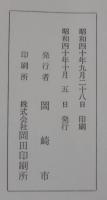 昭和四十年九月二十八日 印刷
昭和四十年十月 五 日 発行
発行者 岡崎市
印刷所 株式会社岡田印刷所